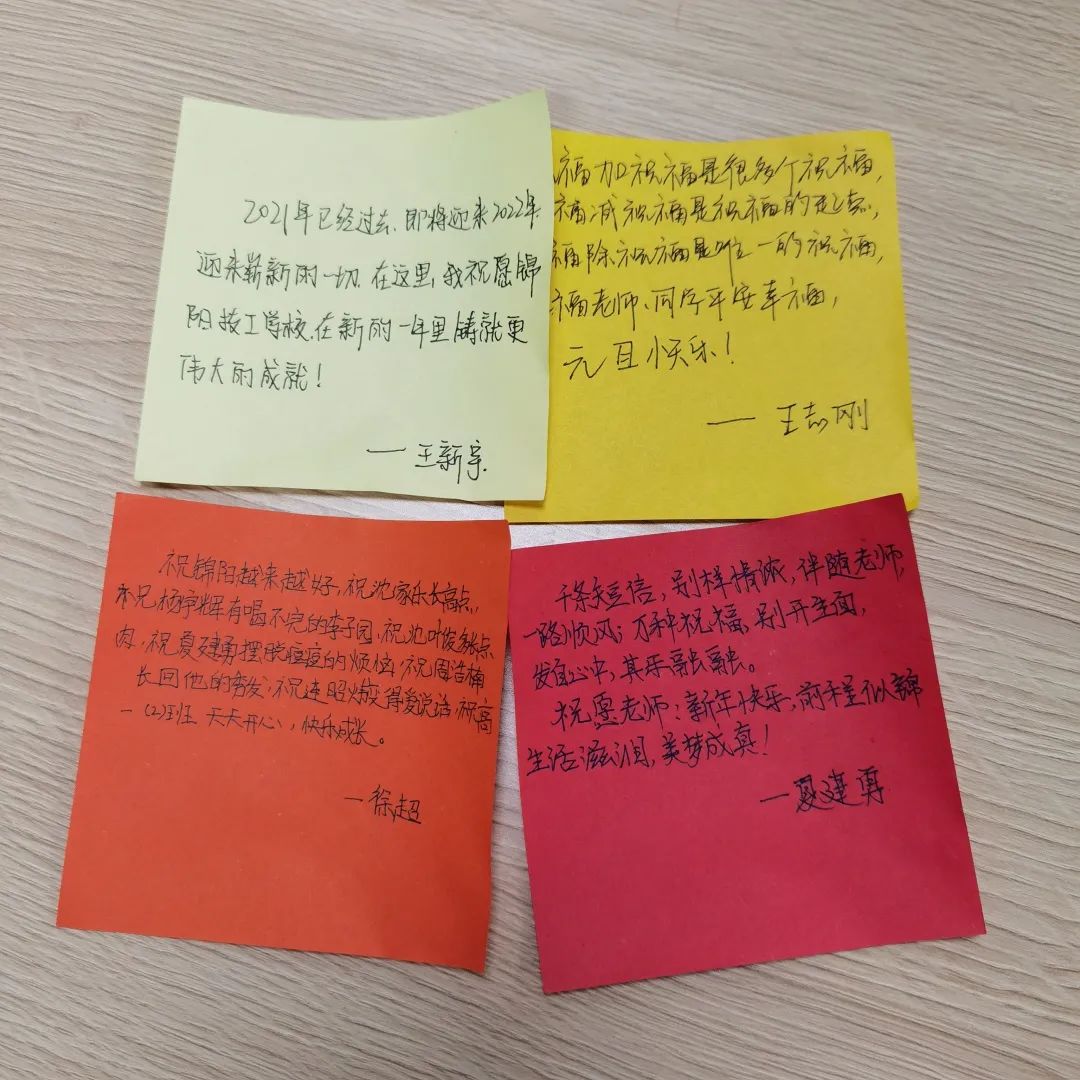 2021年已经过去,即将迎来2022年.
迎来崭新的一切.在这里,我祝愿锦
阳技工学校.在新的一年里铸就更
伟大的成就!
—王新宇.
福加祝福是很多个祝福,
福减祝福是祝福的起点,
福除祝福是唯一的祝福,
福老师、同学平安幸福,
元旦快乐!
—王志刚
祝锦阳越来越好,祝沈家乐长高点,
祝杨宇辉有喝不完的李子园,祝沈叶俊多张点
肉,祝夏建勇摆脱痘痘的烦恼,祝周浩楠
长回他的秀发,祝连照炜变得爱说话,祝高
一(2)班天天开心,快乐成长。
—徐超
千条短信,别样情浓,伴随老师,
一路顺风;万种祝福,别开生面,
发自心中,其乐融融。
祝愿老师:新年快乐;前程似锦
生活滋润,美梦成真!
—夏建勇